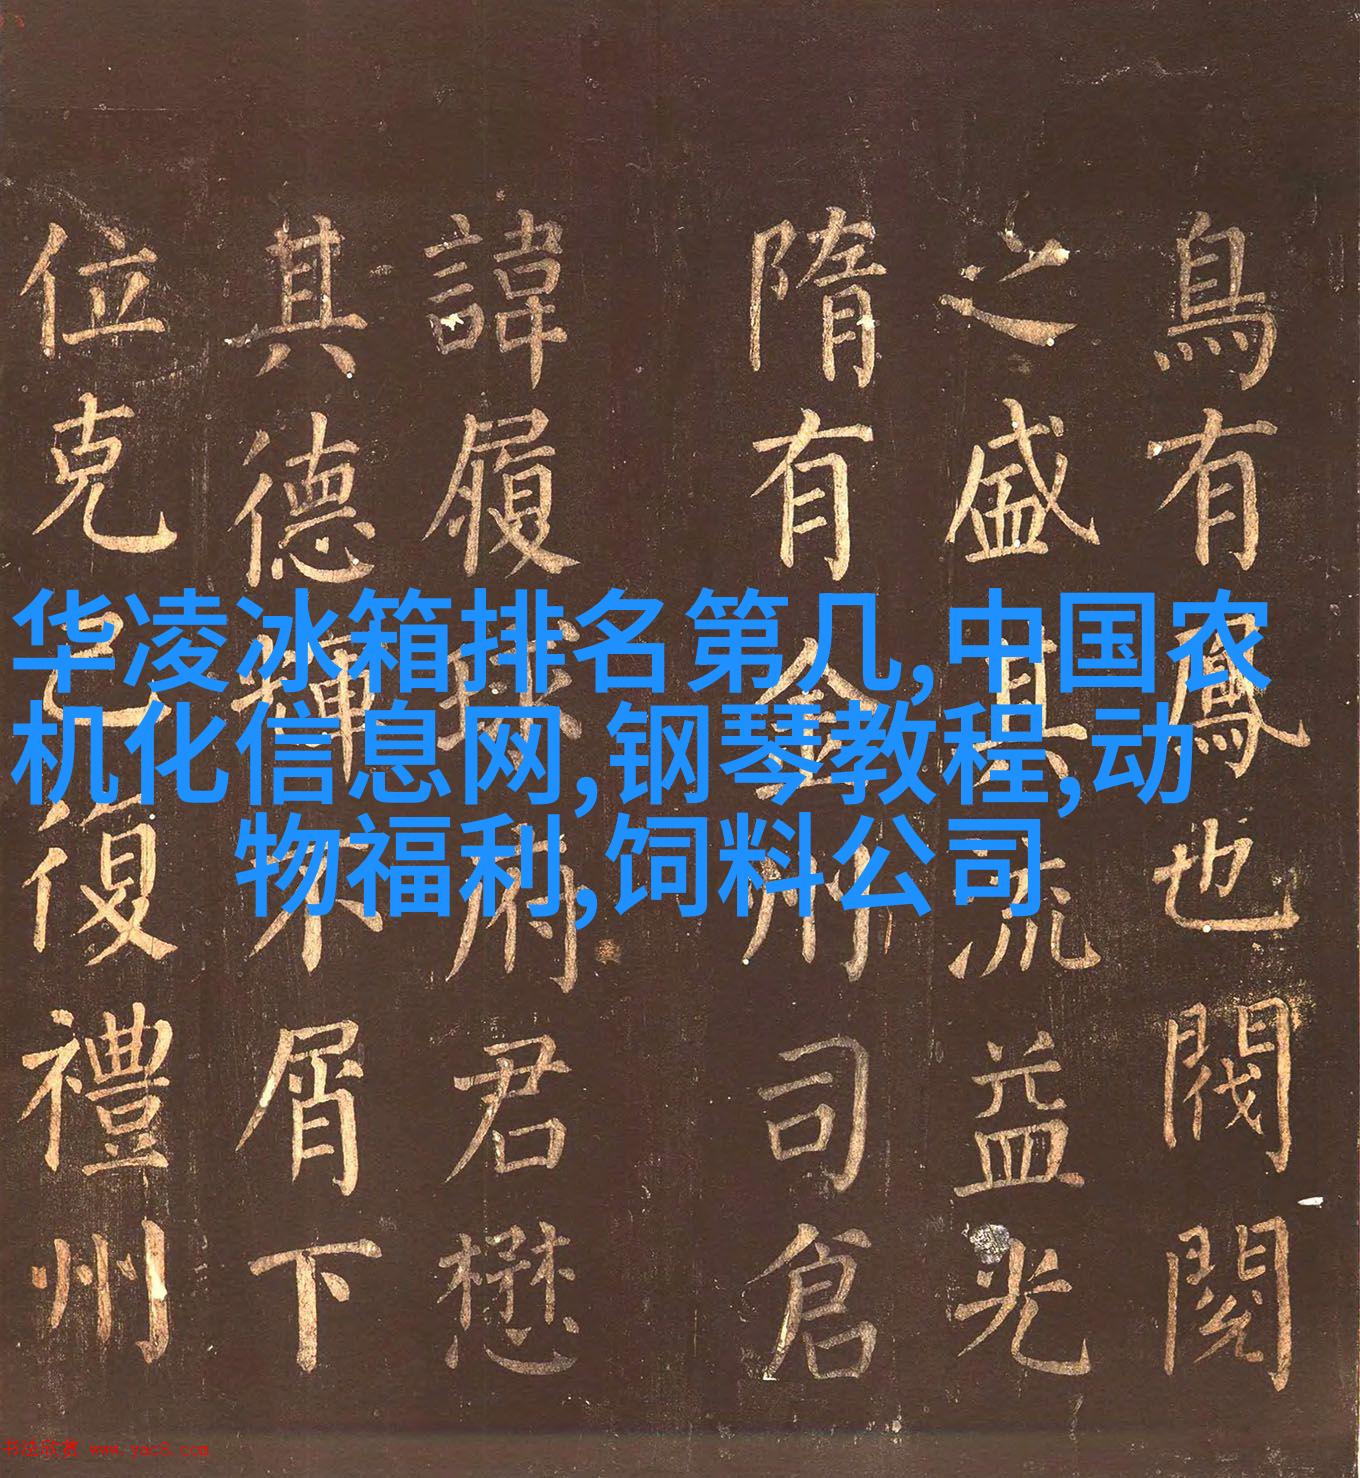 华凌冰箱排名第几,中国农
机化信息网,钢琴教程,动
物福利,饲料公司
鳥有鳳也閥閱
之盛其流益光
隋有金州司倉
諱履球府君懋
其德輝不屑下
位克己復禮州
书法欣赏 www.yac8.com